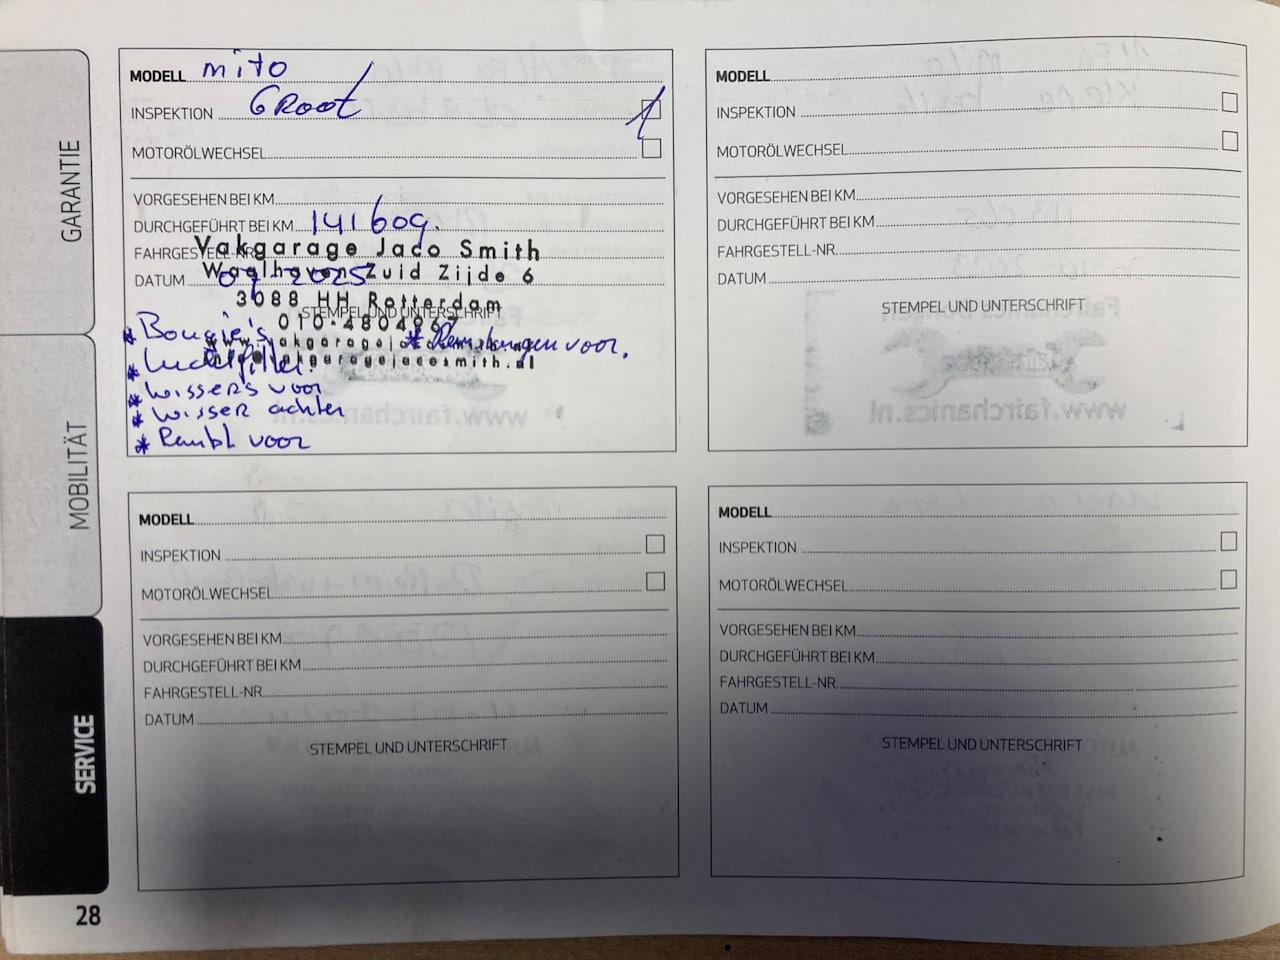 GARANTIE
MOBILITÄT
SERVICE
MODELL mito
INSPEKTION GROOT
MOTORÖLWECHSEL
VORGESEHEN BEI KM
DURCHGEFÜHRT BEI KM 141609.
FAHRGESTELL-NR.
Vakgarage Jaco Smith
DATUM 07-2025
Waalhaven Zuid Zijde 6
3088 HH Rotterdam
STEMPEL UND UNTERSCHRIFT
010-4804967
* Bougie's
* Remslangen voor.
* Luchtfilter.
* wissers voor
* wisser achter
* Rembl voor
MODELL
INSPEKTION
MOTORÖLWECHSEL
VORGESEHEN BEI KM
DURCHGEFÜHRT BEI KM
FAHRGESTELL-NR.
DATUM
STEMPEL UND UNTERSCHRIFT
www.fairchanics.nl
MODELL
INSPEKTION
MOTORÖLWECHSEL
VORGESEHEN BEI KM
DURCHGEFÜHRT BEI KM
FAHRGESTELL-NR.
DATUM
STEMPEL UND UNTERSCHRIFT
MODELL
INSPEKTION
MOTORÖLWECHSEL
VORGESEHEN BEI KM
DURCHGEFÜHRT BEI KM
FAHRGESTELL-NR.
DATUM
STEMPEL UND UNTERSCHRIFT
28